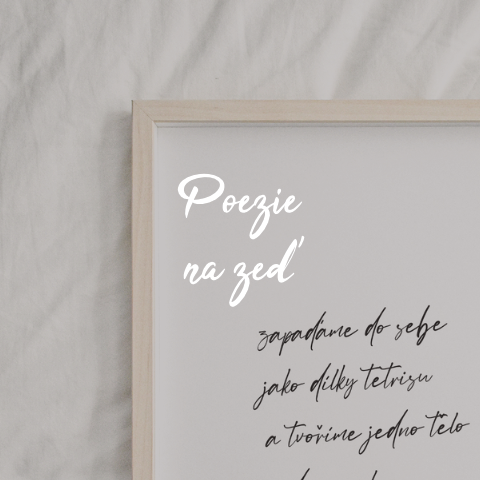 Poezie
na zeď
zapadáme do sebe
jako dílky tetrisu
a tvoříme jedno tělo